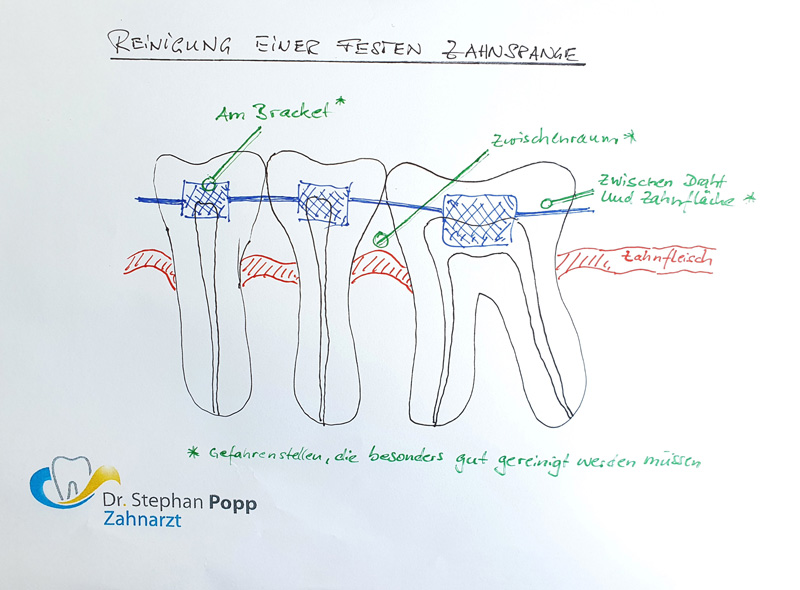 REINIGUNG EINER FESTEN ZAHNSPANGE
Am Bracket*
Zwischenraum*
Zwischen Draht
und Zahnfläche *
Zahnfleisch
* Gefahrenstellen, die besonders gut gereinigt werden müssen
Dr. Stephan Popp
Zahnarzt